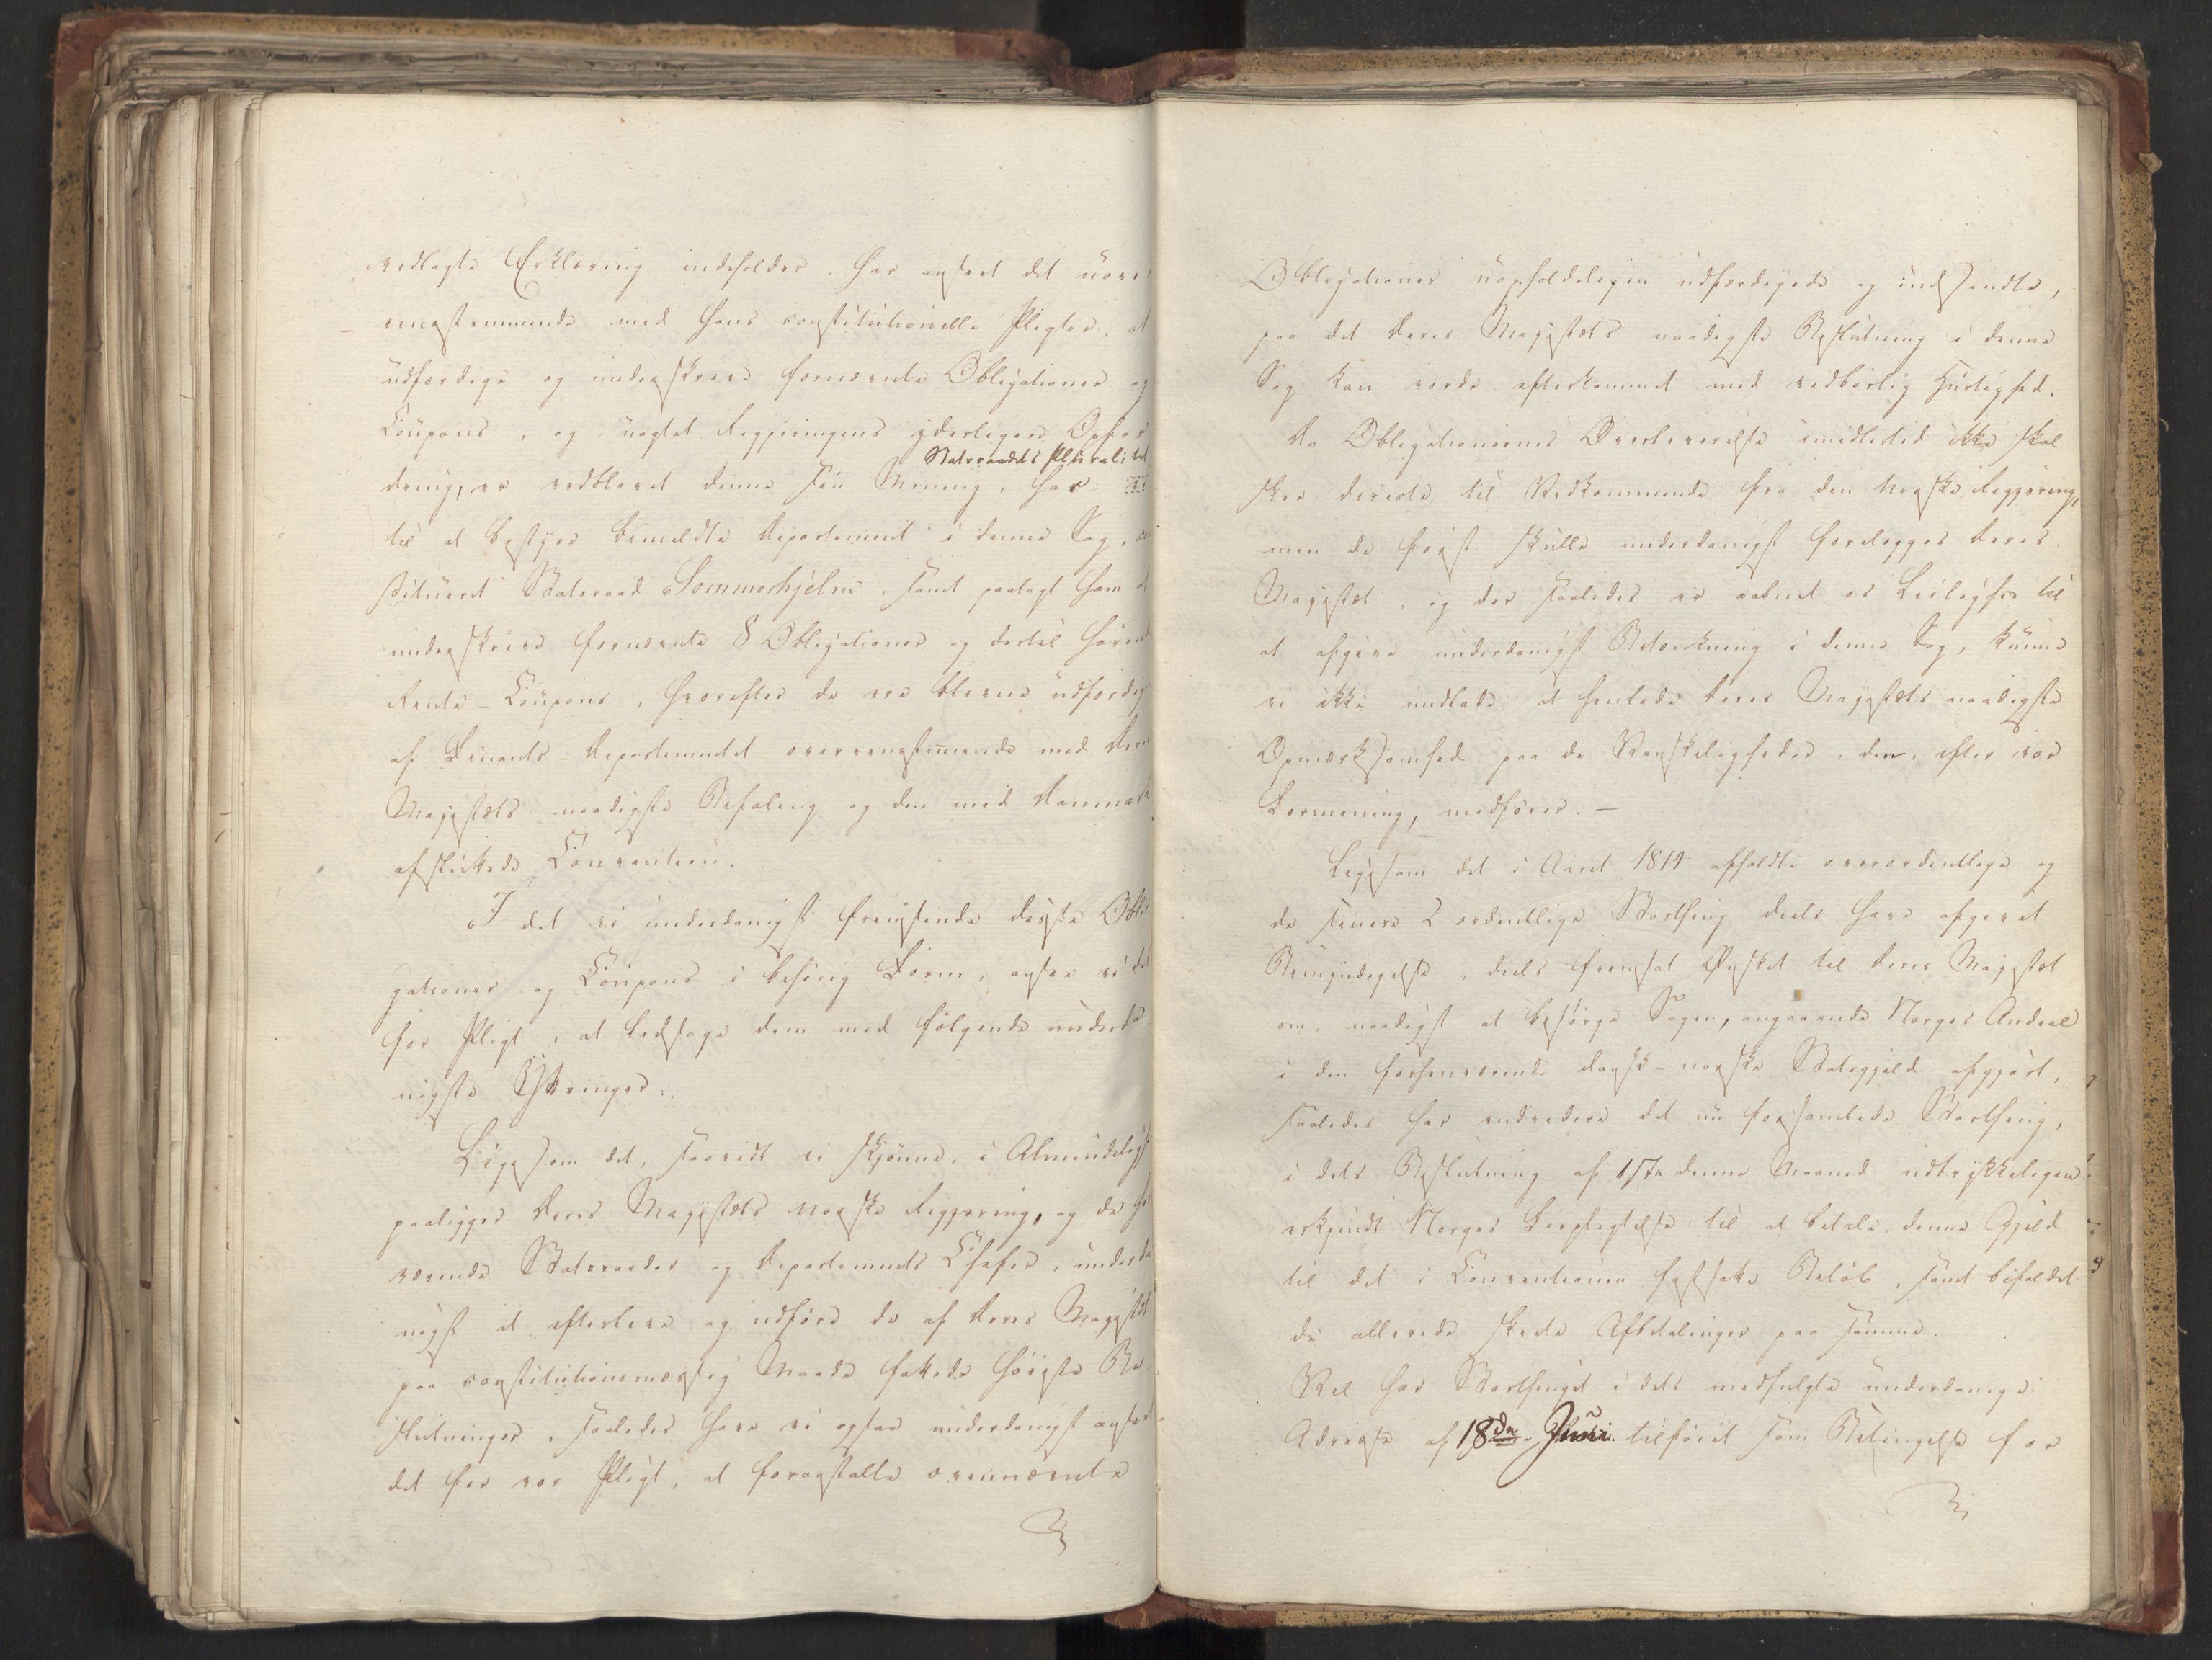 vedlagte Erklæring indeholder, har anseet det uover-
eensstemmende med hans constitutionelle Pligter, at
udfærdige og underskrive fornævnte Obligationer og
Coupons, og uagtet Regjeringens yderligere Opfor
Statsraadets Pluralitet
dring, er vedblevet denne sin Mening, har
til at bestyre bemeldte Departement i denne Sag, con
stitueret Statsraad Sommerhjelm, samt paalagt ham at
underskrive fornævnte 8 Obligationer og dertil hørende
Rente-Coupons, hvorefter de ere blevne udfærdig
af Finants-Departementet overeensstemmende med Deres
Majestæts naadigste Befaling og den med Danmark
afsluttede Convention.
I det vi underdanigst fremsende disse Obli
gationer og Coupons i behørig Form, ansee vi det
for Pligt, at ledsage dem med følgende underda
nigste Yttringer.
Ligesom det, saavidt vi skjønne, i Almindelighed
paaligger Deres Majestæts norske Regjering, og de
værende Statsraader og Departements Chefer, underda
nigst at efterleve og udføre de af Deres Majestæt
paa constitutionsmæssig Maade fattede høieste Be-
slutninger, saaledes have vi ogsaa underdanigst anseet
det for vor Pligt, at foranstalte ovennævnte
Obligationer uopholdeligen udfærdigede og indsendte,
paa det Deres Majestæts naadigste Beslutning i denne
Sag kan vorde efterkommet med tilbørlig Hurtighed.
Da Obligationernes Overleverelse imidlertid ikke skal
skee directe til Vedkommende fra den norske Regjering,
men de først skulle underdanigst forelægges Deres
Majestæt, og der saaledes er aabnet os Leilighed til
at afgive underdanigst Betænkning i denne Sag, kunne
vi ikke undlade at henlede Deres Majestæts naadigste
Opmærksomhed paa de Vanskeligheder, den, efter vor
Formening, medfører. –
Ligesom det i Aaret 1814 afholdte overordentlige og
de senere 2 ordentlige Storthing deels have afgivet
Bemyndigelse, deels fremsat Ønsket til Deres Majestæt
om, naadigst at besørge Sagen, angaaende Norges Andeel
i den forhenværende dansk-norske Statsgjæld afgjort,
saaledes har endvidere det nu forsamlede Storthing,
i dets Beslutning af 15de denne Maaned udtrykkeligen
erkjendt Norges Forpligtelse til at betale denne Gjæld
til det i Conventionen fastsatte Beløb, samt bifaldet
de allerede skeete Afbetalinger paa samme.
Vel har Storthinget i dets medfulgte underdanige
Adresse af 18de Juni tilføiet som Betingelse for